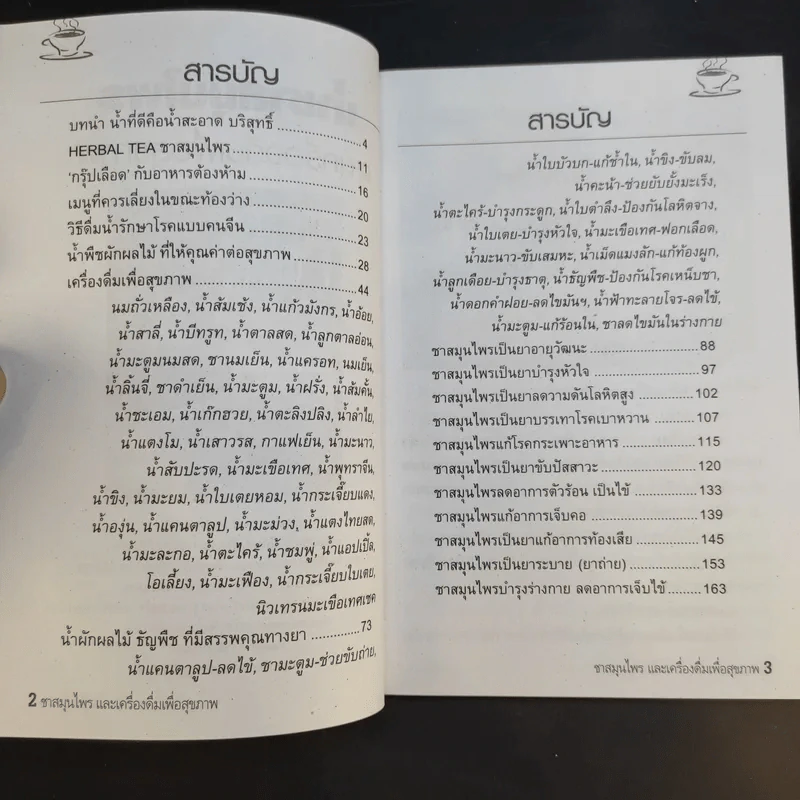 สารบัญ
บทนำ น้ำที่ดีคือน้ำสะอาด บริสุทธิ์ ........................ 4
HERBAL TEA ชาสมุนไพร ........................ 11
‘กรุ๊ปเลือด’ กับอาหารต้องห้าม ........................ 16
เมนูที่ควรเลี่ยงในขณะท้องว่าง ........................ 20
วิธีดื่มน้ำรักษาโรคแบบคนจีน ........................ 23
น้ำพืชผักผลไม้ ที่ให้คุณค่าต่อสุขภาพ ................ 28
เครื่องดื่มเพื่อสุขภาพ ........................ 44
นมถั่วเหลือง, น้ำส้มเช้ง, น้ำแก้วมังกร, น้ำอ้อย,
น้ำสาลี่, น้ำบีทรูท, น้ำตาลสด, น้ำลูกตาลอ่อน,
น้ำมะตูมนมสด, ชานมเย็น, น้ำแครอท, นมเย็น,
น้ำลิ้นจี่, ชาดำเย็น, น้ำมะตูม, น้ำฝรั่ง, น้ำส้มคั้น,
น้ำชะเอม, น้ำเก๊กฮวย, น้ำตะลิงปลิง, น้ำลำไย,
น้ำแตงโม, น้ำเสาวรส, กาแฟเย็น, น้ำมะนาว,
น้ำสับปะรด, น้ำมะเขือเทศ, น้ำพุทราจีน,
น้ำขิง, น้ำมะยม, น้ำใบเตยหอม, น้ำกระเจี๊ยบแดง,
น้ำองุ่น, น้ำแคนตาลูป, น้ำมะม่วง, น้ำแตงไทยสด,
น้ำมะละกอ, น้ำตะไคร้, น้ำชมพู่, น้ำแอปเปิ้ล,
โอเลี้ยง, น้ำมะเฟือง, น้ำกระเจี๊ยบใบเตย,
นิวเทรนมะเขือเทศเชค
น้ำผักผลไม้ ธัญพืช ที่มีสรรพคุณทางยา ............. 73
น้ำแคนตาลูป-ลดไข้, ชามะตูม-ช่วยขับถ่าย,
2 ชาสมุนไพร และเครื่องดื่มเพื่อสุขภาพ
สารบัญ
น้ำใบบัวบก-แก้ช้ำใน, น้ำขิง-ขับลม,
น้ำคะน้า-ช่วยยับยั้งมะเร็ง,
น้ำตะไคร้-บำรุงกระดูก, น้ำใบตำลึง-ป้องกันโลหิตจาง,
น้ำใบเตย-บำรุงหัวใจ, น้ำมะเขือเทศ-ฟอกเลือด,
น้ำมะนาว-ขับเสมหะ, น้ำเม็ดแมงลัก-แก้ท้องผูก,
น้ำลูกเดือย-บำรุงธาตุ, น้ำธัญพืช-ป้องกันโรคเหน็บชา,
น้ำดอกคำฝอย-ลดไขมันฯ, น้ำฟ้าทะลายโจร-ลดไข้,
น้ำมะตูม-แก้ร้อนใน, ชาลดไขมันในร่างกาย
ชาสมุนไพรเป็นยาอายุวัฒนะ ........................ 88
ชาสมุนไพรเป็นยาบำรุงหัวใจ ........................ 97
ชาสมุนไพรเป็นยาลดความดันโลหิตสูง ................ 102
ชาสมุนไพรเป็นยาบรรเทาโรคเบาหวาน ........... 107
ชาสมุนไพรแก้โรคกระเพาะอาหาร ................... 115
ชาสมุนไพรเป็นยาขับปัสสาวะ ........................ 120
ชาสมุนไพรลดอาการตัวร้อน เป็นไข้ ................. 133
ชาสมุนไพรแก้อาการเจ็บคอ ........................ 139
ชาสมุนไพรเป็นยาแก้อาการท้องเสีย ................. 145
ชาสมุนไพรเป็นยาระบาย (ยาถ่าย) ................... 153
ชาสมุนไพรบำรุงร่างกาย ลดอาการเจ็บไข้ ......... 163
ชาสมุนไพร และเครื่องดื่มเพื่อสุขภาพ 3